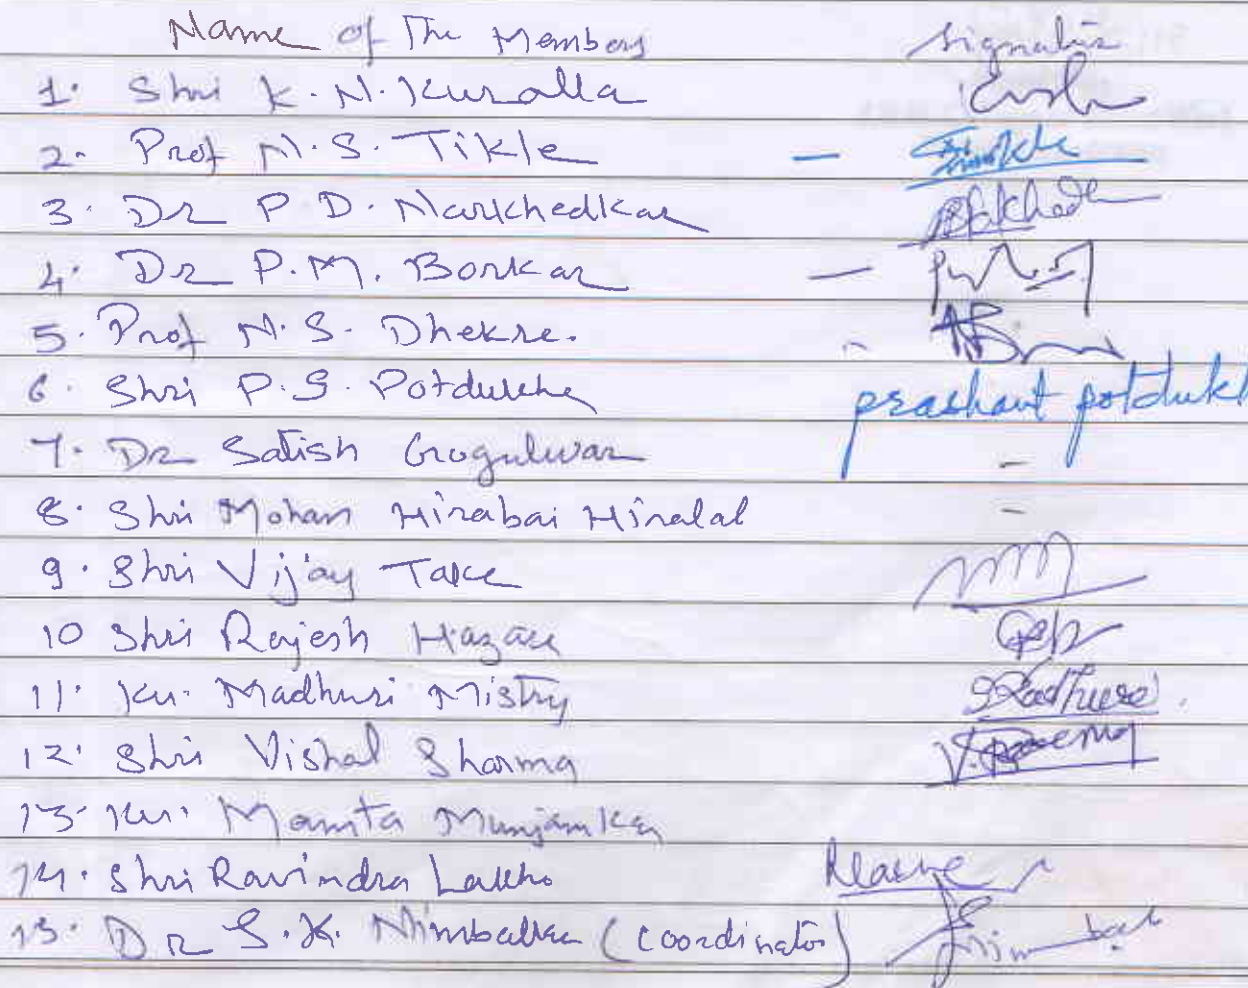 Name of The Members Signature
1. Shri K. N. Kuralla
2. Prof N. S. Tikle -
3. Dr P. D. Narkhedkar
4. Dr P. M. Borkar -
5. Prof N. S. Dhekre. -
6. Shri P. S. Potdukhe prashant potdukh
7. Dr Satish Gogulwar -
8. Shri Mohan Hirabai Hiralal -
9. Shri Vijay Take
10 Shri Rajesh Hazare
11. Ku. Madhuri Mistry
12. Shri Vishal Sharma
13. Ku. Mamta Munjamkar
14. Shri Ravindra
15. Dr S. K. Nimbalkar (coordinator)